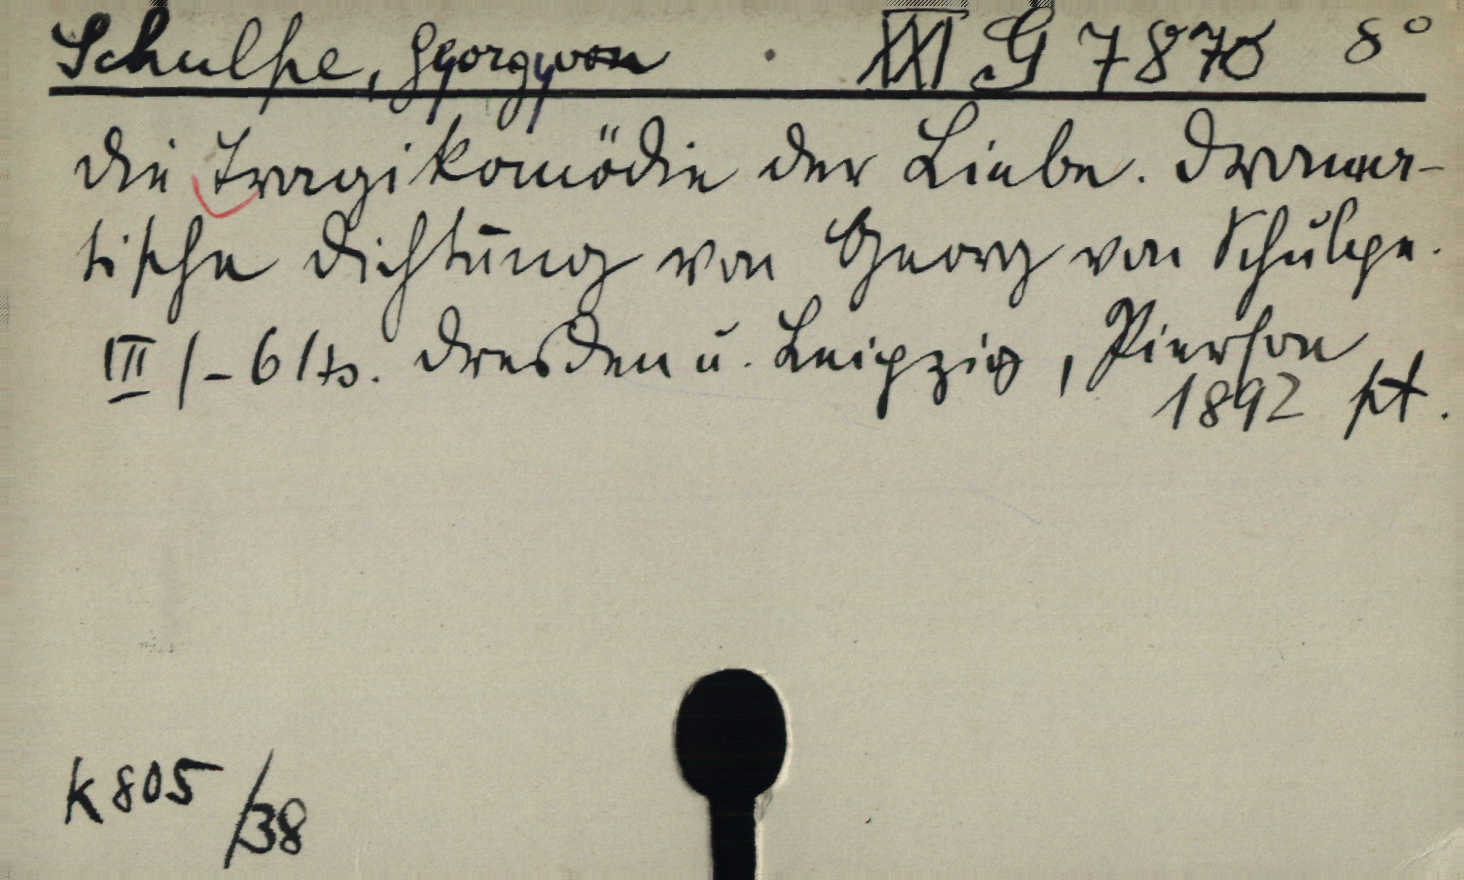 Schulpe, György von XXI G 7876 8°
Die Tragikomödie der Liebe. Drama-
tische Dichtung von Georg von Schulpe.
III 1-61 Ss. Dresden u. Leipzig, Pierson
1892 pt.
K 805/38